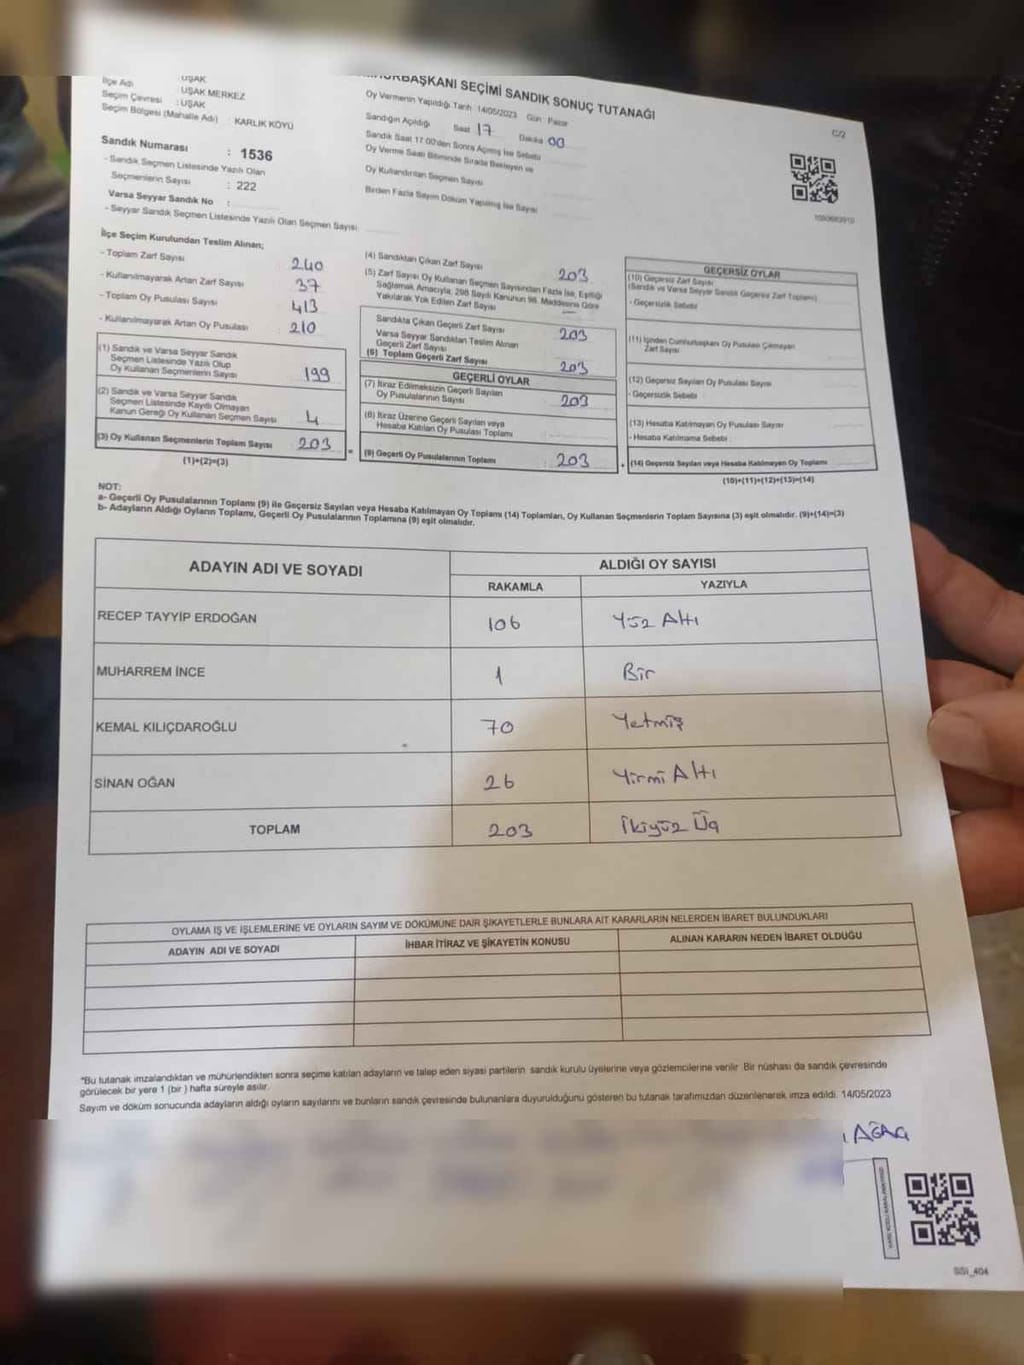 URBAŞKANI SEÇİMİ SANDIK SONUÇ TUTANAĞI
C/2
İlçe Adı : UŞAK
Seçim Çevresi : UŞAK MERKEZ
: UŞAK
Seçim Bölgesi (Mahalle Adı) : KARLIK KÖYÜ
Oy Vermenin Yapıldığı Tarih 14/05/2023 Gün : Pazar
Sandığın Açıldığı Saat 17 Dakika 00
Sandık Saat 17:00'den Sonra Açılmış İse Sebebi
Oy Verme Saati Bitiminde Sırada Bekleyen ve
Oy Kullandırılan Seçmen Sayısı
Birden Fazla Sayım Döküm Yapılmış İse Sayısı
Sandık Numarası : 1536
- Sandık Seçmen Listesinde Yazılı Olan
Seçmenlerin Sayısı : 222
Varsa Seyyar Sandık No :
- Seyyar Sandık Seçmen Listesinde Yazılı Olan Seçmen Sayısı
İlçe Seçim Kurulundan Teslim Alınan;
- Toplam Zarf Sayısı 240
- Kullanılmayarak Artan Zarf Sayısı 37
- Toplam Oy Pusulası Sayısı 413
- Kullanılmayarak Artan Oy Pusulası 210
(1) Sandık ve Varsa Seyyar Sandık
Seçmen Listesinde Yazılı Olup
Oy Kullanan Seçmenlerin Sayısı 199
(2) Sandık ve Varsa Seyyar Sandık
Seçmen Listesinde Kayıtlı Olmayan
Kanun Gereği Oy Kullanan Seçmen Sayısı 4
(3) Oy Kullanan Seçmenlerin Toplam Sayısı 203
(1)+(2)=(3)
(4) Sandıktan Çıkan Zarf Sayısı 203
(5) Zarf Sayısı Oy Kullanan Seçmen Sayısından Fazla İse, Eşitliği
Sağlamak Amacıyla, 298 Sayılı Kanunun 98. Maddesine Göre
Yakılarak Yok Edilen Zarf Sayısı —
Sandıkta Çıkan Geçerli Zarf Sayısı 203
Varsa Seyyar Sandıktan Teslim Alınan
Geçerli Zarf Sayısı
(6) Toplam Geçerli Zarf Sayısı 203
GEÇERLİ OYLAR
(7) İtiraz Edilmeksizin Geçerli Sayılan
Oy Pusulalarının Sayısı 203
(8) İtiraz Üzerine Geçerli Sayılan veya
Hesaba Katılan Oy Pusulası Toplamı
(9) Geçerli Oy Pusulalarının Toplamı 203
GEÇERSİZ OYLAR
(10) Geçersiz Zarf Sayısı
(Sandık ve Varsa Seyyar Sandık Geçersiz Zarf Toplamı)
- Geçersizlik Sebebi
(11) İçinden Cumhurbaşkanı Oy Pusulası Çıkmayan
Zarf Sayısı
(12) Geçersiz Sayılan Oy Pusulası Sayısı
- Geçersizlik Sebebi
(13) Hesaba Katılmayan Oy Pusulası Sayısı
- Hesaba Katılmama Sebebi
(14) Geçersiz Sayılan veya Hesaba Katılmayan Oy Toplamı
(10)+(11)+(12)+(13)=(14)
NOT:
a- Geçerli Oy Pusulalarının Toplamı (9) ile Geçersiz Sayılan veya Hesaba Katılmayan Oy Toplamı (14) Toplamları, Oy Kullanan Seçmenlerin Toplam Sayısına (3) eşit olmalıdır. (9)+(14)=(3)
b- Adayların Aldığı Oyların Toplamı, Geçerli Oy Pusulalarının Toplamına (9) eşit olmalıdır.
ADAYIN ADI VE SOYADI ALDIĞI OY SAYISI
RAKAMLA YAZIYLA
RECEP TAYYİP ERDOĞAN 106 Yüz Altı
MUHARREM İNCE 1 Bir
KEMAL KILIÇDAROĞLU 70 Yetmiş
SİNAN OĞAN 26 Yirmi Altı
TOPLAM 203 İkiyüz Üç
OYLAMA İŞ VE İŞLEMLERİNE VE OYLARIN SAYIM VE DÖKÜMÜNE DAİR ŞİKAYETLERLE BUNLARA AİT KARARLARIN NELERDEN İBARET BULUNDUKLARI
ADAYIN ADI VE SOYADI İHBAR İTİRAZ VE ŞİKAYETİN KONUSU ALINAN KARARIN NEDEN İBARET OLDUĞU
*Bu tutanak imzalandıktan ve mühürlendikten sonra seçime katılan adayların ve talep eden siyasi partilerin sandık kurulu üyelerine veya gözlemcilerine verilir. Bir nüshası da sandık çevresinde
görülecek bir yere 1 (bir ) hafta süreyle asılır.
Sayım ve döküm sonucunda adayların aldığı oyların sayılarını ve bunların sandık çevresinde bulunanlara duyurulduğunu gösteren bu tutanak tarafımızdan düzenlenerek imza edildi. 14/05/2023
SSI_404